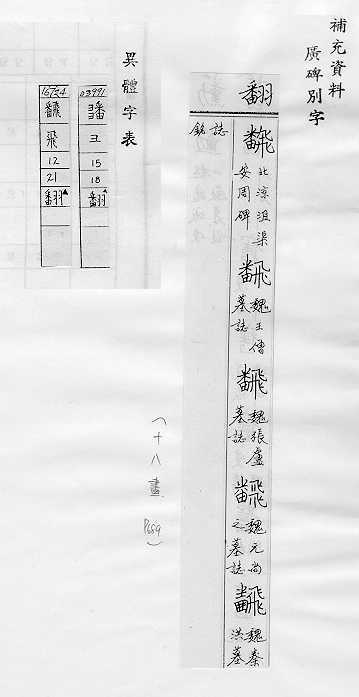 補充資料
廣碑別字
翻
飜
北涼沮渠
安周碑
飜
魏王僧
墓誌
飜
魏張盧
墓誌
飜
魏元尚
之墓誌
飜
魏秦
洪墓
誌銘
(十八畫 P659)
異體字表
03991
彐
15
18
翻
16754
飜
飛
12
21
翻